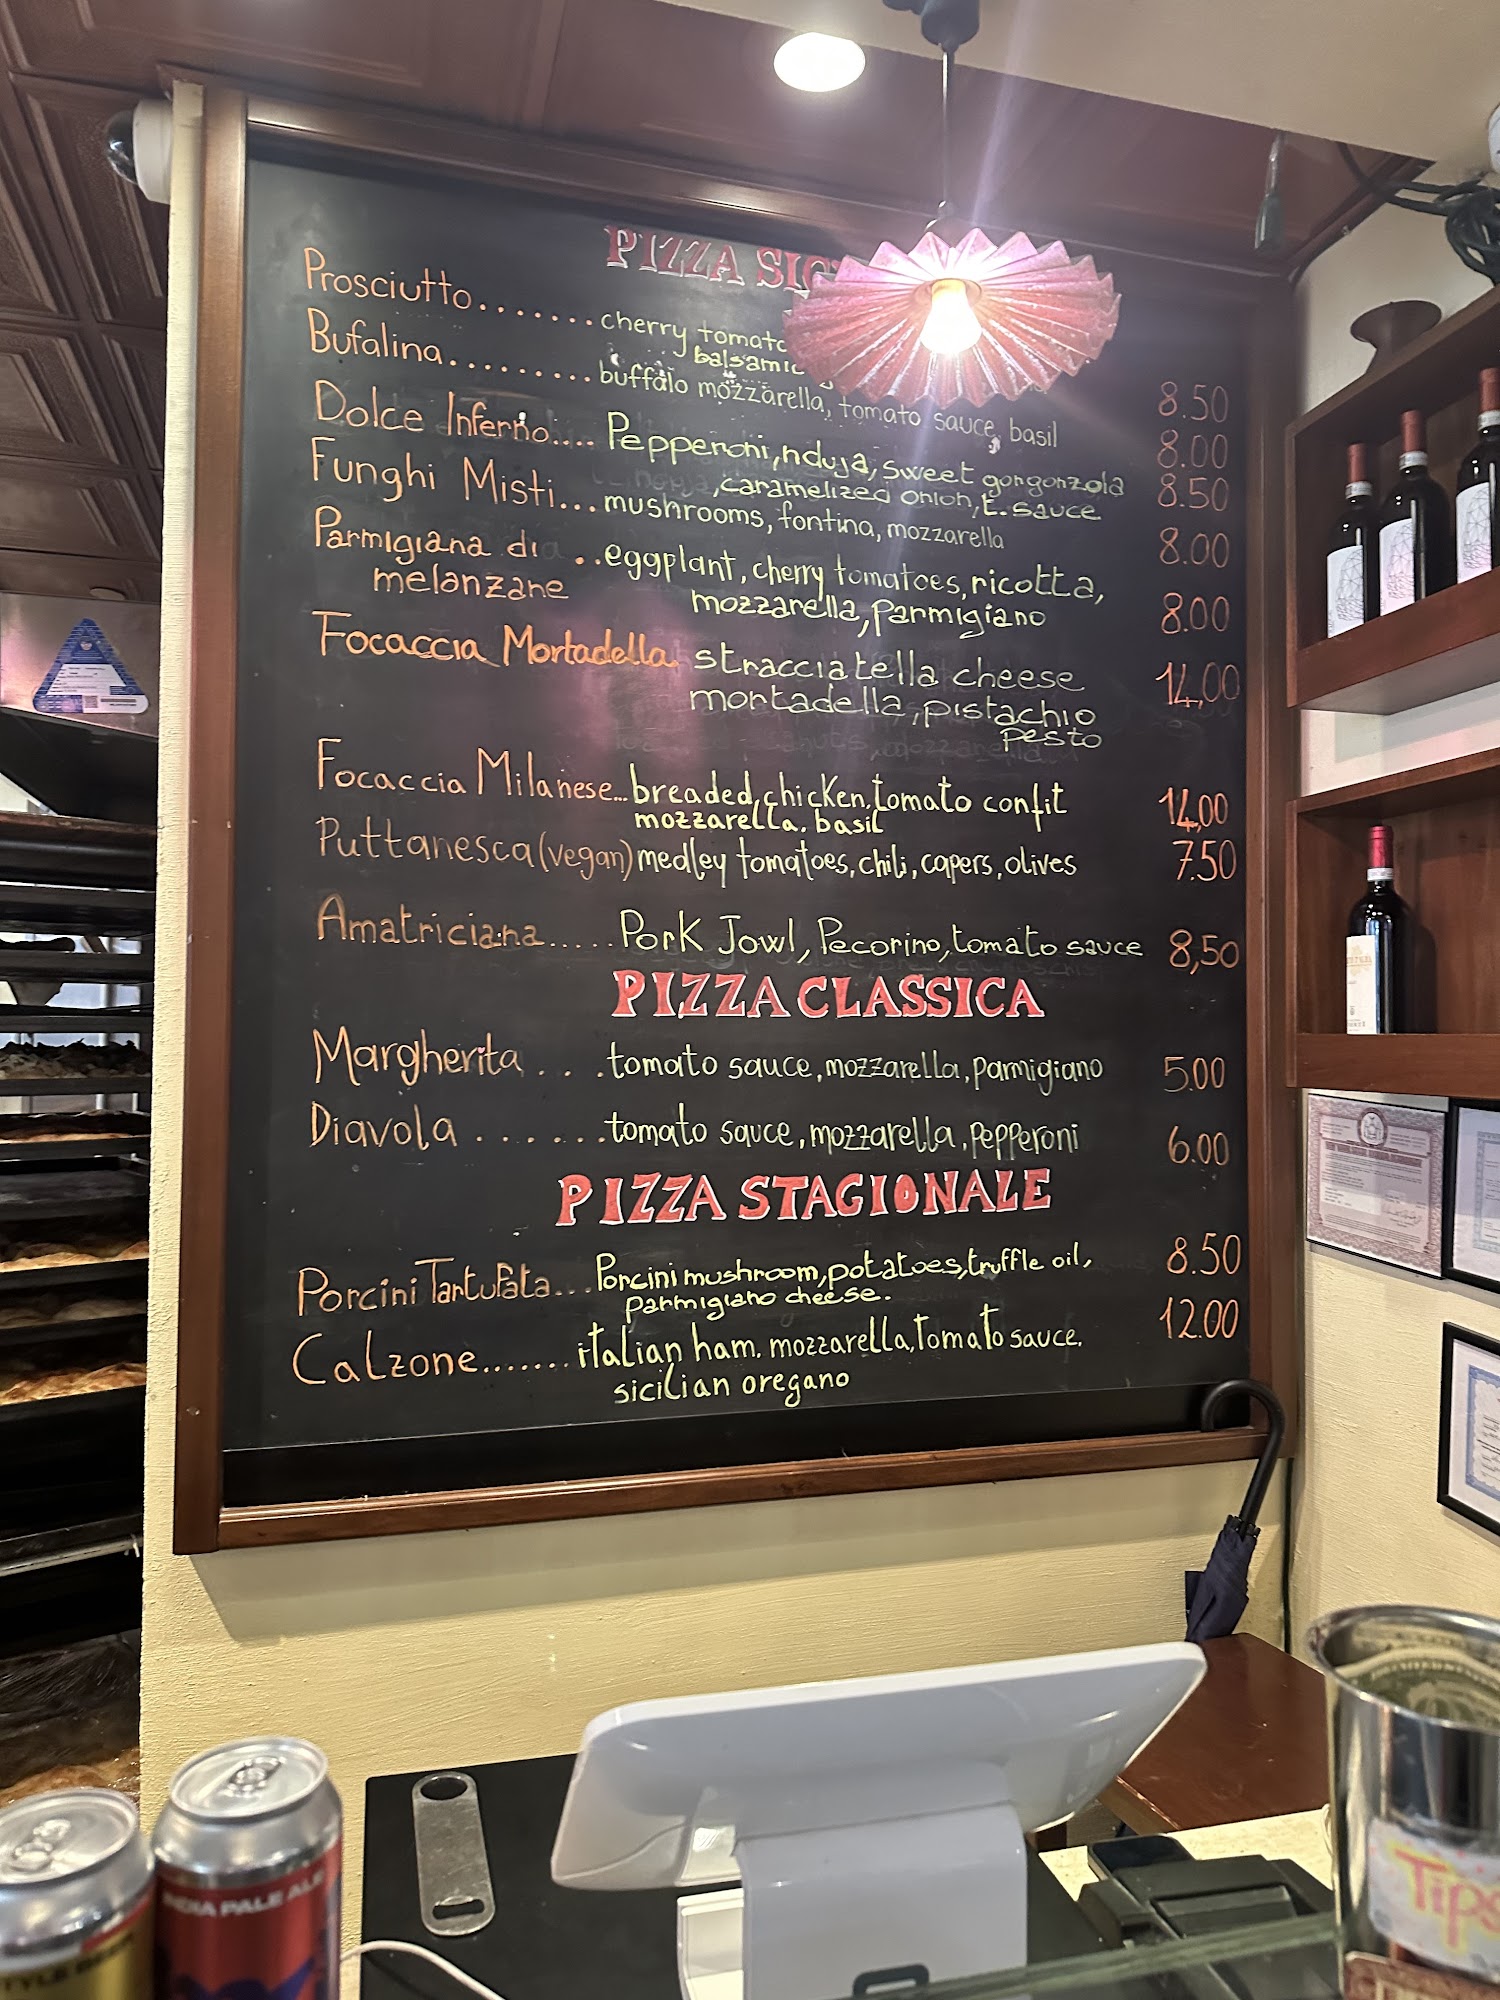 PIZZA
Prosciutto.......cherry
balsamic 8.50
Bufalina.........buffalo mozzarella, tomato sauce, basil 8.00
Dolce Inferno....Pepperoni, nduja, sweet gongonzola 8.50
,caramelized onion, t. sauce
Funghi Misti...mushrooms, fontina, mozzarella 8.00
Parmigiana di ..eggplant, cherry tomatoes, ricotta,
melanzane mozzarella, parmigiano 8.00
Focaccia Mortadella stracciatella cheese 14,00
mortadella, pistachio
pesto
Focaccia Milanese...breaded, chicken, tomato confit 14,00
mozzarella. basil
Puttanesca (vegan) medley tomatoes, chili, capers, olives 7.50
Amatriciana.....Pork Jowl, Pecorino, tomato sauce 8,50
PIZZA CLASSICA
Margherita...tomato sauce, mozzarella, parmigiano 5.00
Diavola......tomato sauce, mozzarella, pepperoni 6.00
PIZZA STAGIONALE
Porcini Tartufata...Porcini mushroom, potatoes, truffle oil, 8.50
parmigiano cheese.
Calzone.......italian ham. mozzarella, tomato sauce. 12.00
sicilian oregano
INDIA PALE ALE
Tips